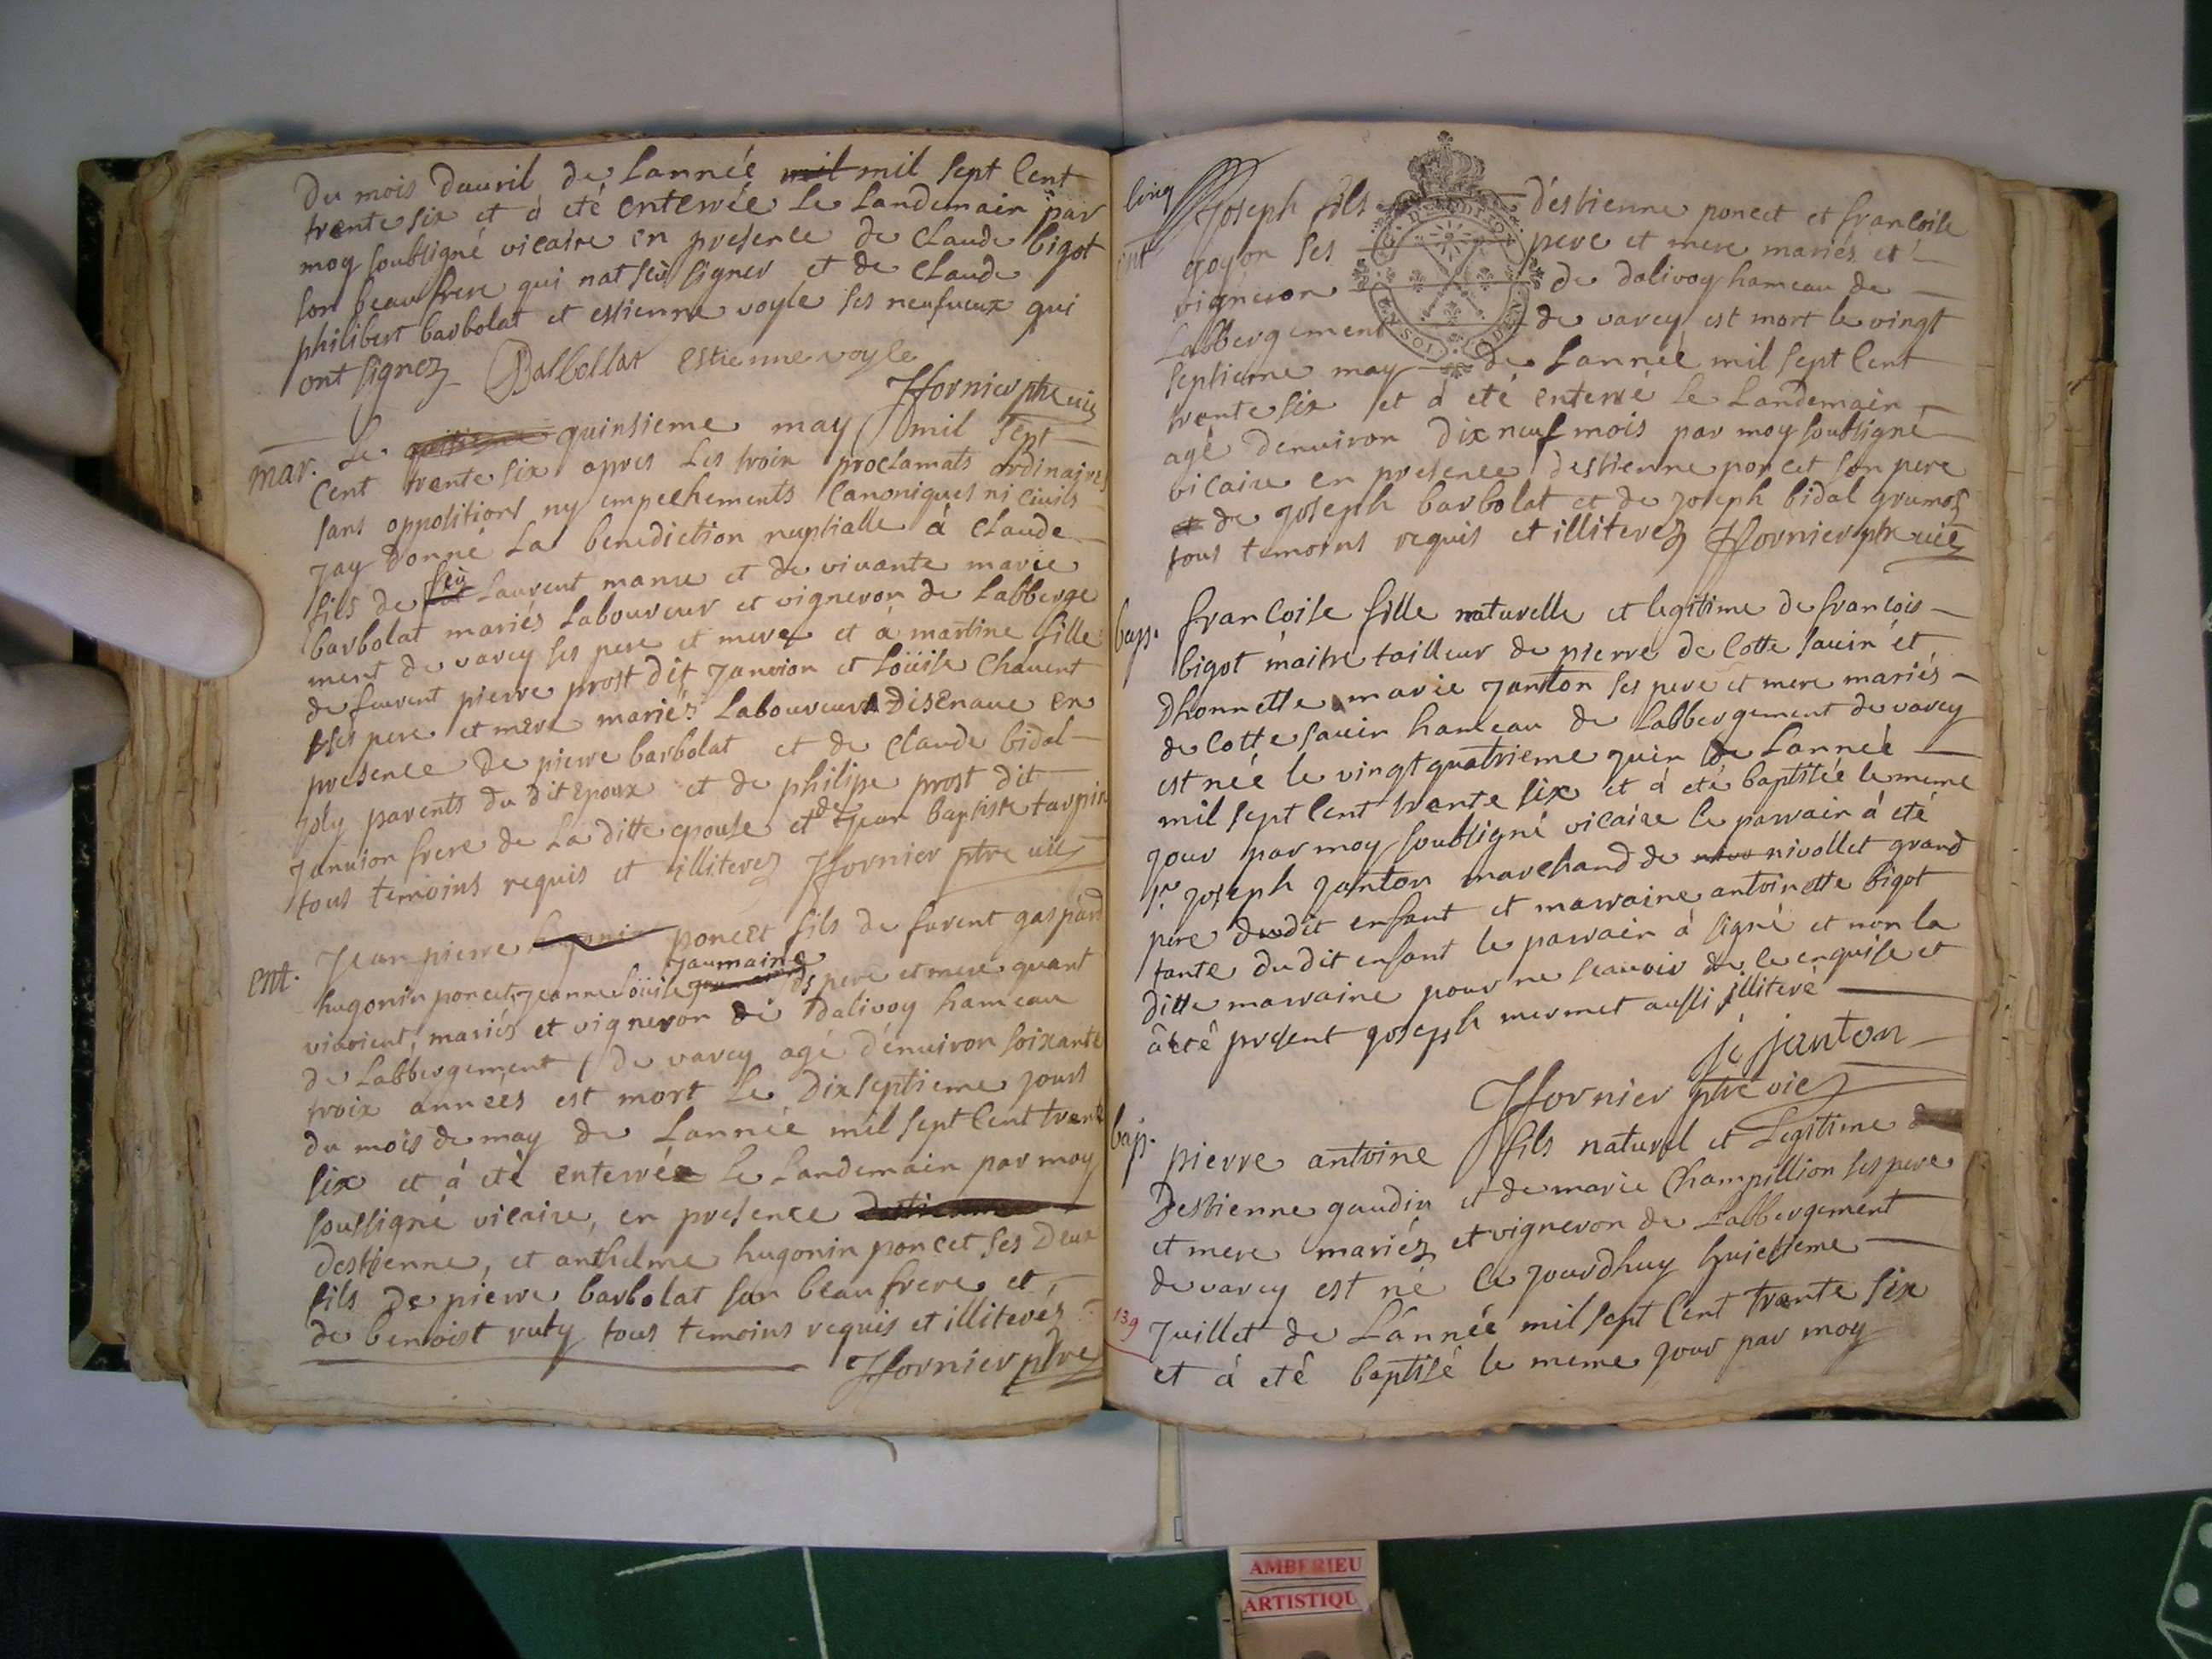 Du mois Dauril de Lannée mil mil sept Cent
trente six et à eté enterrée Le Landemain par
moy soubsigné vicaire en presence de Claude bigot
son beaufrere qui nat seü signer et de Claude
philibert barbolat et estienne voyle ses neufueux qui
ont signez Balbollat estienne voyle
Hornier ptre vic
mar. Le quinsieme may mil sept
Cent trente six apres Les trois proclamats ordinaires
sans oppositions ny empechements Canoniques ni Ciuils
Jay Donné La benediction nuptialle à Claude
fils de feü Laurent manre et de viuante marie
barbolat mariés Laboureur et vigneron de Labberge
ment de varey ses pere et mere et à martine fille
de feurent pierre prost dit Janvion et Loüise Chauent
ses pere et mere mariés Laboureurs Disenaue en
presence de pierre barbolat et de Claude bidal
Joly parents du dit epoux et de philipe prost dit
Januion frere de La ditte epouse et de Jean baptiste tarpin
tous temoins requis et illiterez Hornier ptre vic
ent. Jean pierre poncet fils de furent gaspard
Jaumaine
hugonin poncet, Jeanne Loüise ds pere et mere quant
viuoient, mariés et vigneron de Dalivoy hameau
de Labbergement de varey agé d'enuiron soixante
troix années est mort Le Dixseptieme jours
du mois de may de Lannée mil sept Cent trente
six et à eté enterrée Le Landemain par moy
soussigné vicaire, en presence
Destienne, et anthelme hugonin poncet ses Deux
fils de pierre barbolat son beaufrere et
de benoist ruty tous temoins requis et illiterés
Hornier ptre
Cinq Joseph fils d'éstienne poncet et francoise
ent goyon ses pere et mere mariés et
vigneron de dalivoy hameau de
Labbergement de varey est mort le vingt
septieme may de Lannée mil sept Cent
trente six et à eté enterré Le Landemain
agé denuiron dix neuf mois par moy soubsigné
vicaire en presence destienne poncet son pere
et de Joseph barbolat et de Joseph bidal grumoz
tous temoins requis et illiterez Hornier ptre vic
bap. francoise fille naturelle et legitime de francois
bigot maitre tailleur de pierre de Cotte sauin et
Dhonnette marie Janton ses pere et mere mariés
de Cotte sauin hameau de Labbergement de varey
est née le vingt quatrieme juin de Lannée
mil sept Cent trente six et à eté baptisée le meme
jour par moy soubsigné vicaire le parrain à eté
sr. Joseph Janton marchand de nivollet grand
pere dudit enfant et marraine antoinette bigot
tante du dit enfant le parrain à signé et non la
ditte marraine pour ne scauoir de ce enquise et
à eté present joseph mermet aussi illiteré
je janton
Hornier ptre vic
bap. pierre antoine fils naturel et Legitime
Destienne gaudin et de marie Champillion ses pere
et mere mariéz et vigneron de Labbergement
de varey est né Ce jourdhuy huictieme
139 Juillet de L'année mil sept Cent trente six
et à eté baptisé le meme jour par moy
D'AUDITION
IOSSENSOI
AMBERIEU
ARTISTIQU